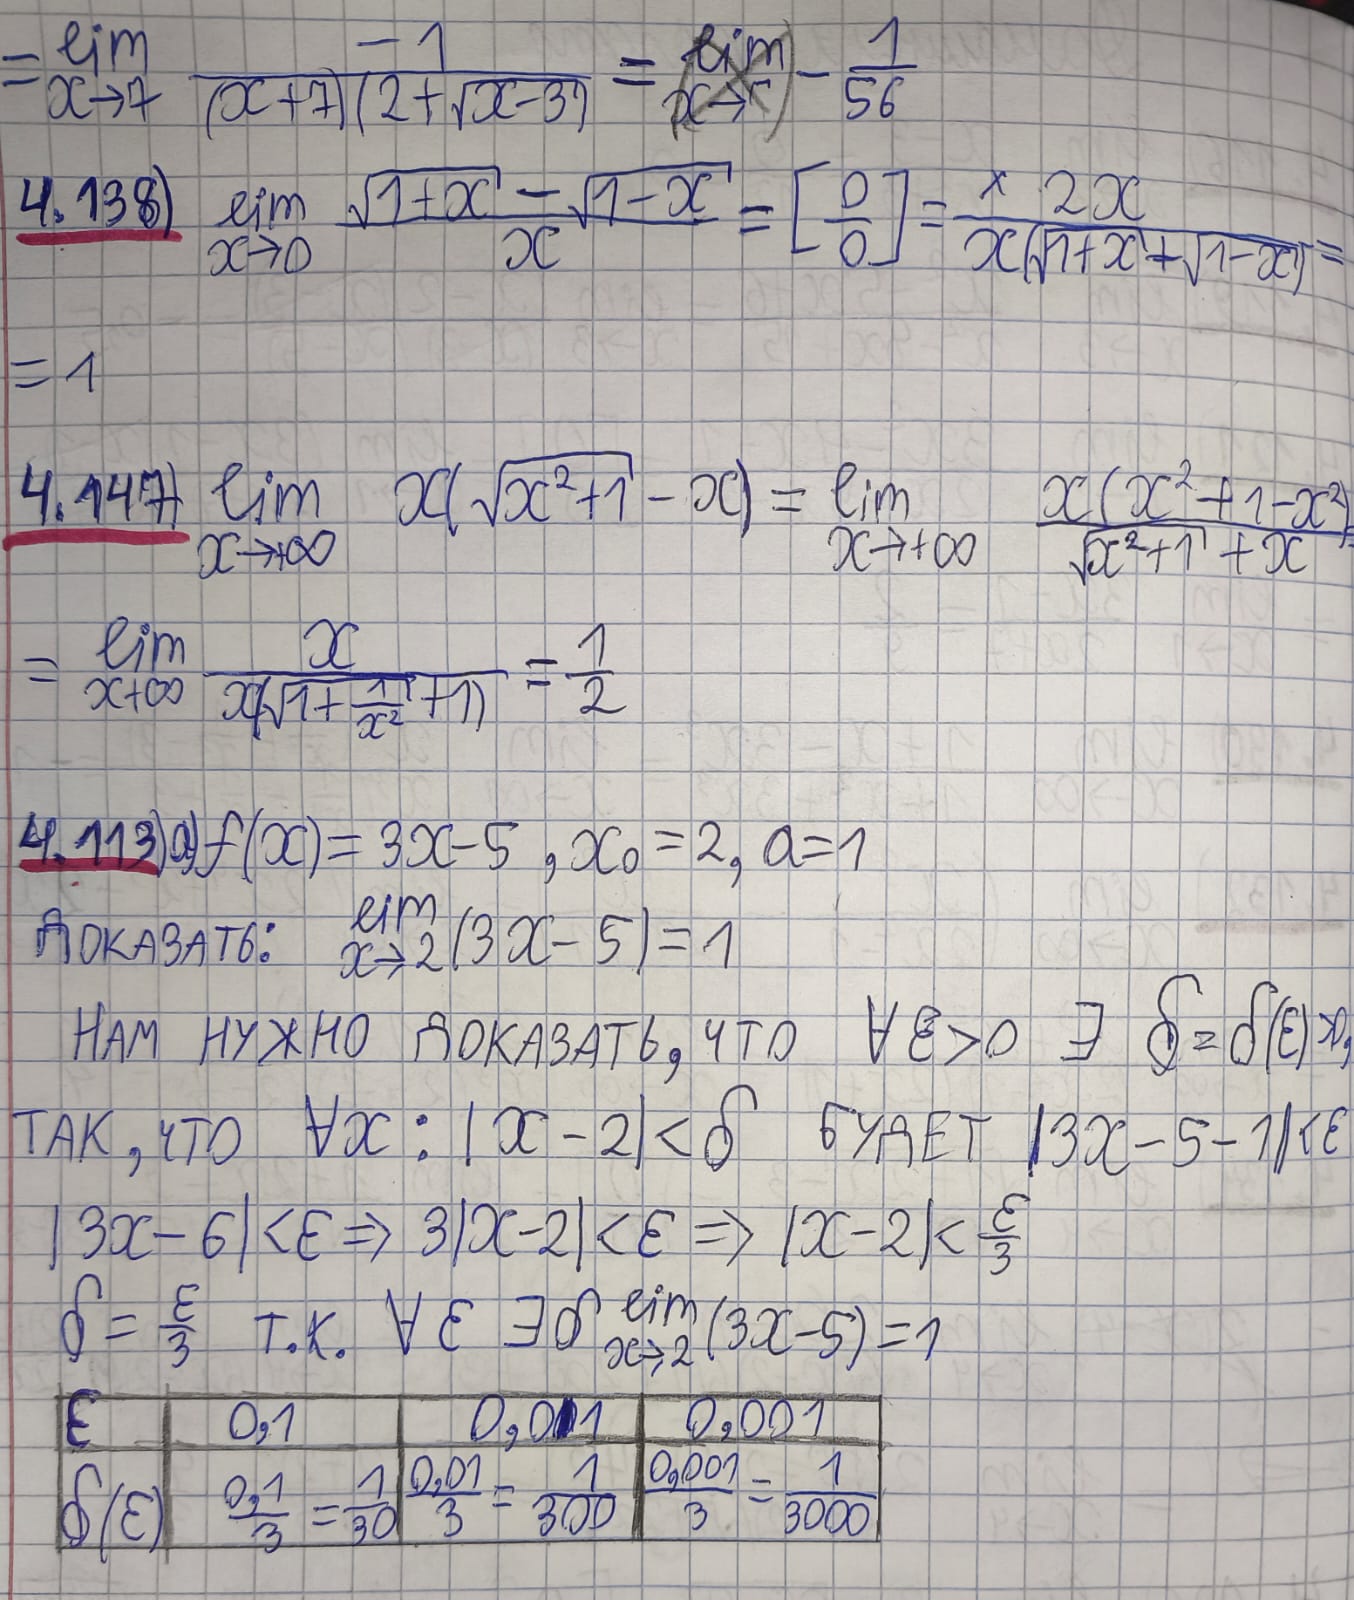 = lim x→7 -1/((x+7)(2+√(x-3))) = - 1/56
4.138) lim x→0 (√(1+x) - √(1-x))/x = [0/0] = 2x/(x(√(1+x)+√(1-x))) =
= 1
4.147) lim x→+∞ x(√(x²+1) - x) = lim x→+∞ x(x²+1-x²)/(√(x²+1)+x) =
= lim x→+∞ x/(x(√(1+1/x²)+1)) = 1/2
4.113) а) f(x) = 3x-5, x₀ = 2, a = 1
ДОКАЗАТЬ: lim x→2 (3x-5) = 1
НАМ НУЖНО ДОКАЗАТЬ, ЧТО ∀ε>0 ∃ δ=δ(ε)>0,
ТАК, ЧТО ∀x: |x-2|<δ БУДЕТ |3x-5-1|<ε
|3x-6|<ε ⇒ 3|x-2|<ε ⇒ |x-2|<ε/3
δ = ε/3 Т.К. ∀ε ∃δ lim x→2 (3x-5) = 1
ε 0,1 0,01 0,001
δ(ε) 0,1/3 = 1/30 0,01/3 = 1/300 0,001/3 = 1/3000